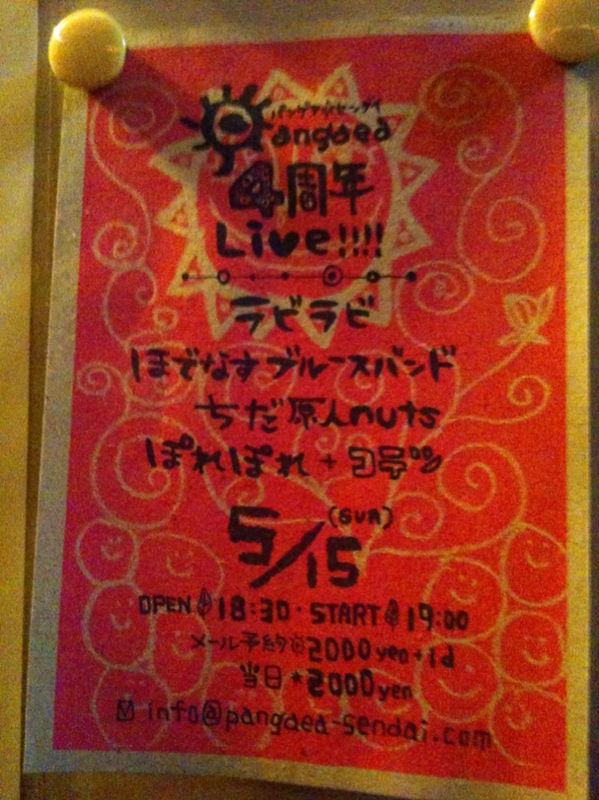 パンゲアセンダイ
Pangaea
4周年
Live!!!!
ラビラビ
ほでなすブルースバンド
ちだ原人nuts
ぽれぽれ +
(SUN)
5/15
OPEN 18:30・START 19:00
メール予約 2000yen+1d
当日*2000yen
info@pangaea-sendai.com